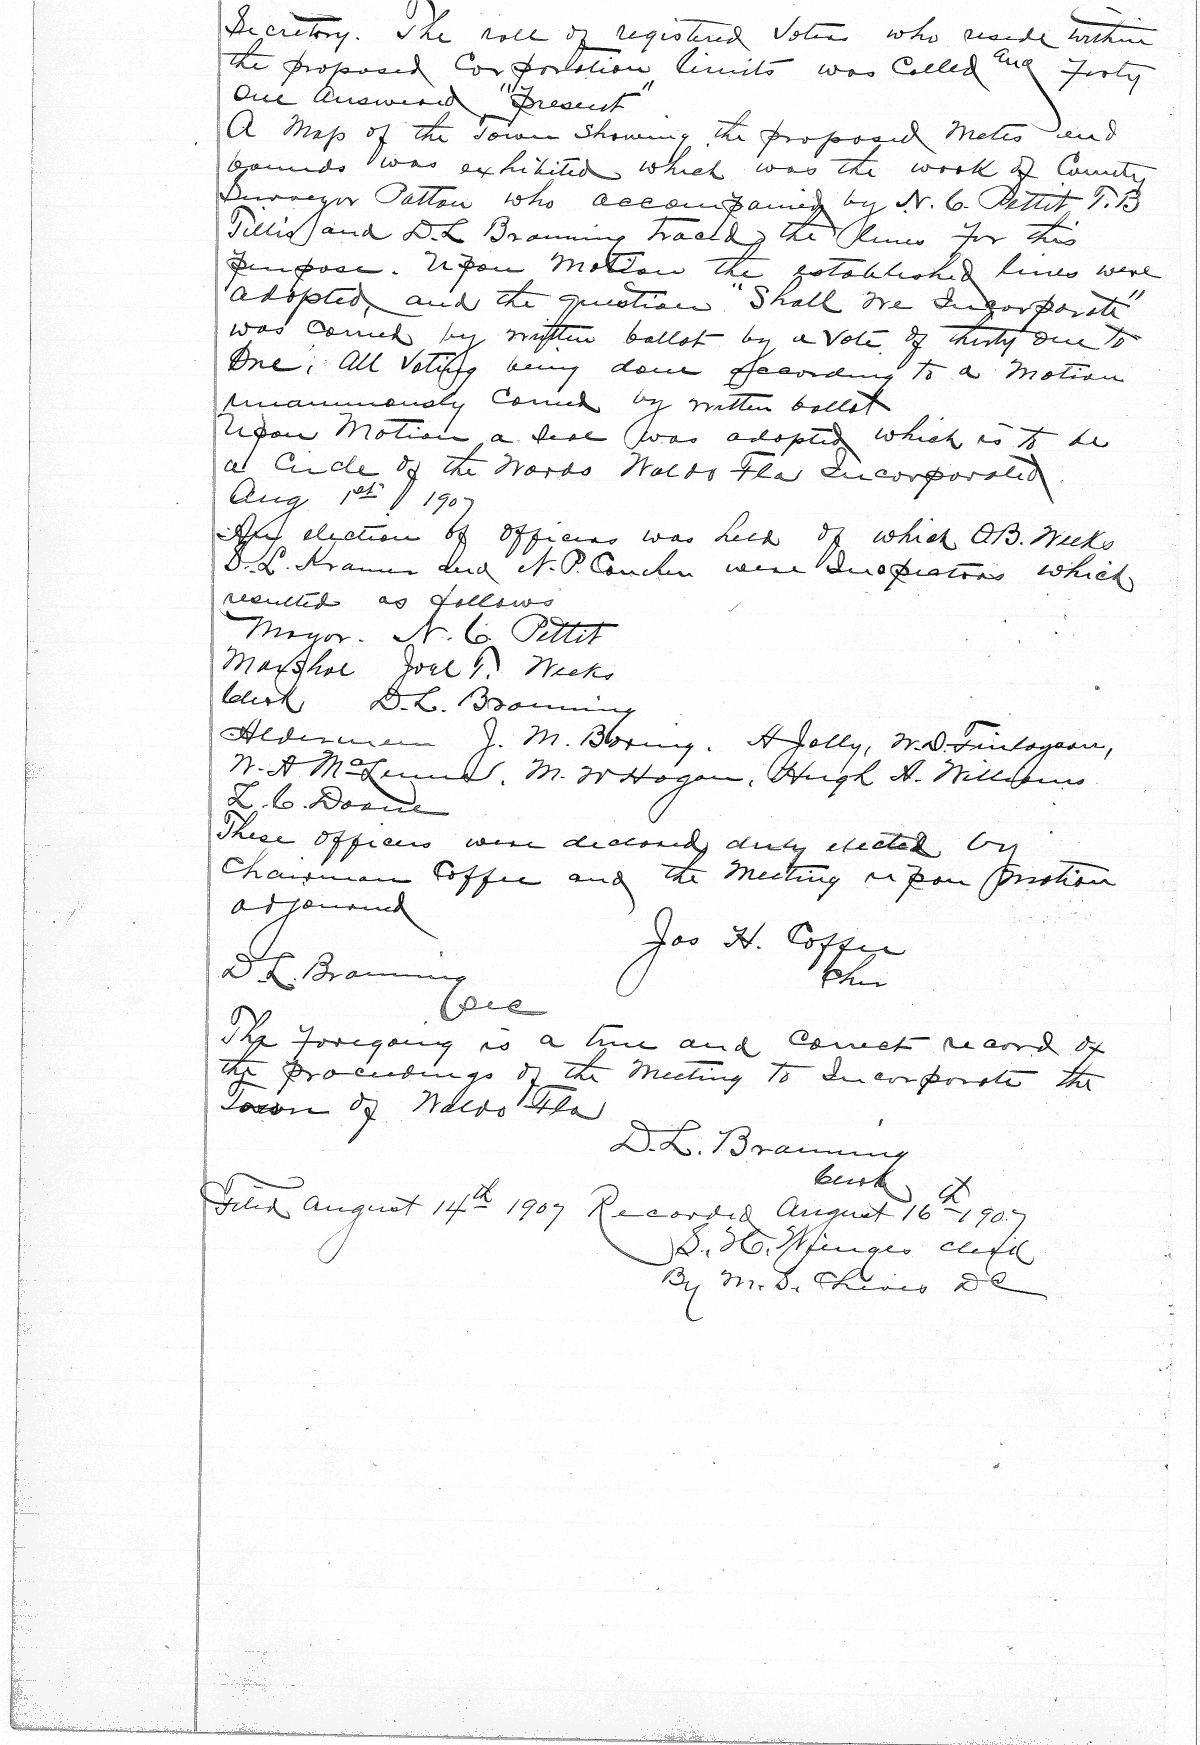 Secretary. The roll of registered Voters who reside within
the proposed Corporation limits was Called and Forty
One Answered "Present"
A Map of the Town showing the proposed Metes and
bounds was exhibited which was the work of County
Surveyor Patton who accompanied by N. C. Pettit T.B
Tillis and D.L Branning traced the lines for this
purpose. Upon Motion the established lines were
adopted, and the question "Shall We Incorporate"
was carried by written ballot by a Vote of thirty one to
One, All Voting being done according to a Motion
unanimously Carried by written ballot
Upon Motion a Seal was adopted which is to be
a Circle of the Words Waldo Fla Incorporated
Aug 1st 1907
An election of officers was held of which O.B. Weeks
D.L. Kramer and N.P. were Inspectors which
resulted as follows
Mayor. N. C. Pettit
Marshal Joel T. Weeks
Clerk D.L. Branning
Aldermen J. M. Boring. H Jolly, W.D. Finlayson,
W. A , M. W Hogan, Hugh A. Williams
L. C. Doane
These officers were declared duly elected by
Chairman Coffee and the Meeting upon motion
adjourned
Jos H. Coffee
D.L. Branning Chr
Sec
The Foregoing is a true and Correct record of
the proceedings of the Meeting to Incorporate the
Town of Waldo Fla
D.L. Branning
Clerk
Filed August 14th 1907 Recorded August 16th 1907
S. H. Wienges clerk
By M. S. Cheves DC